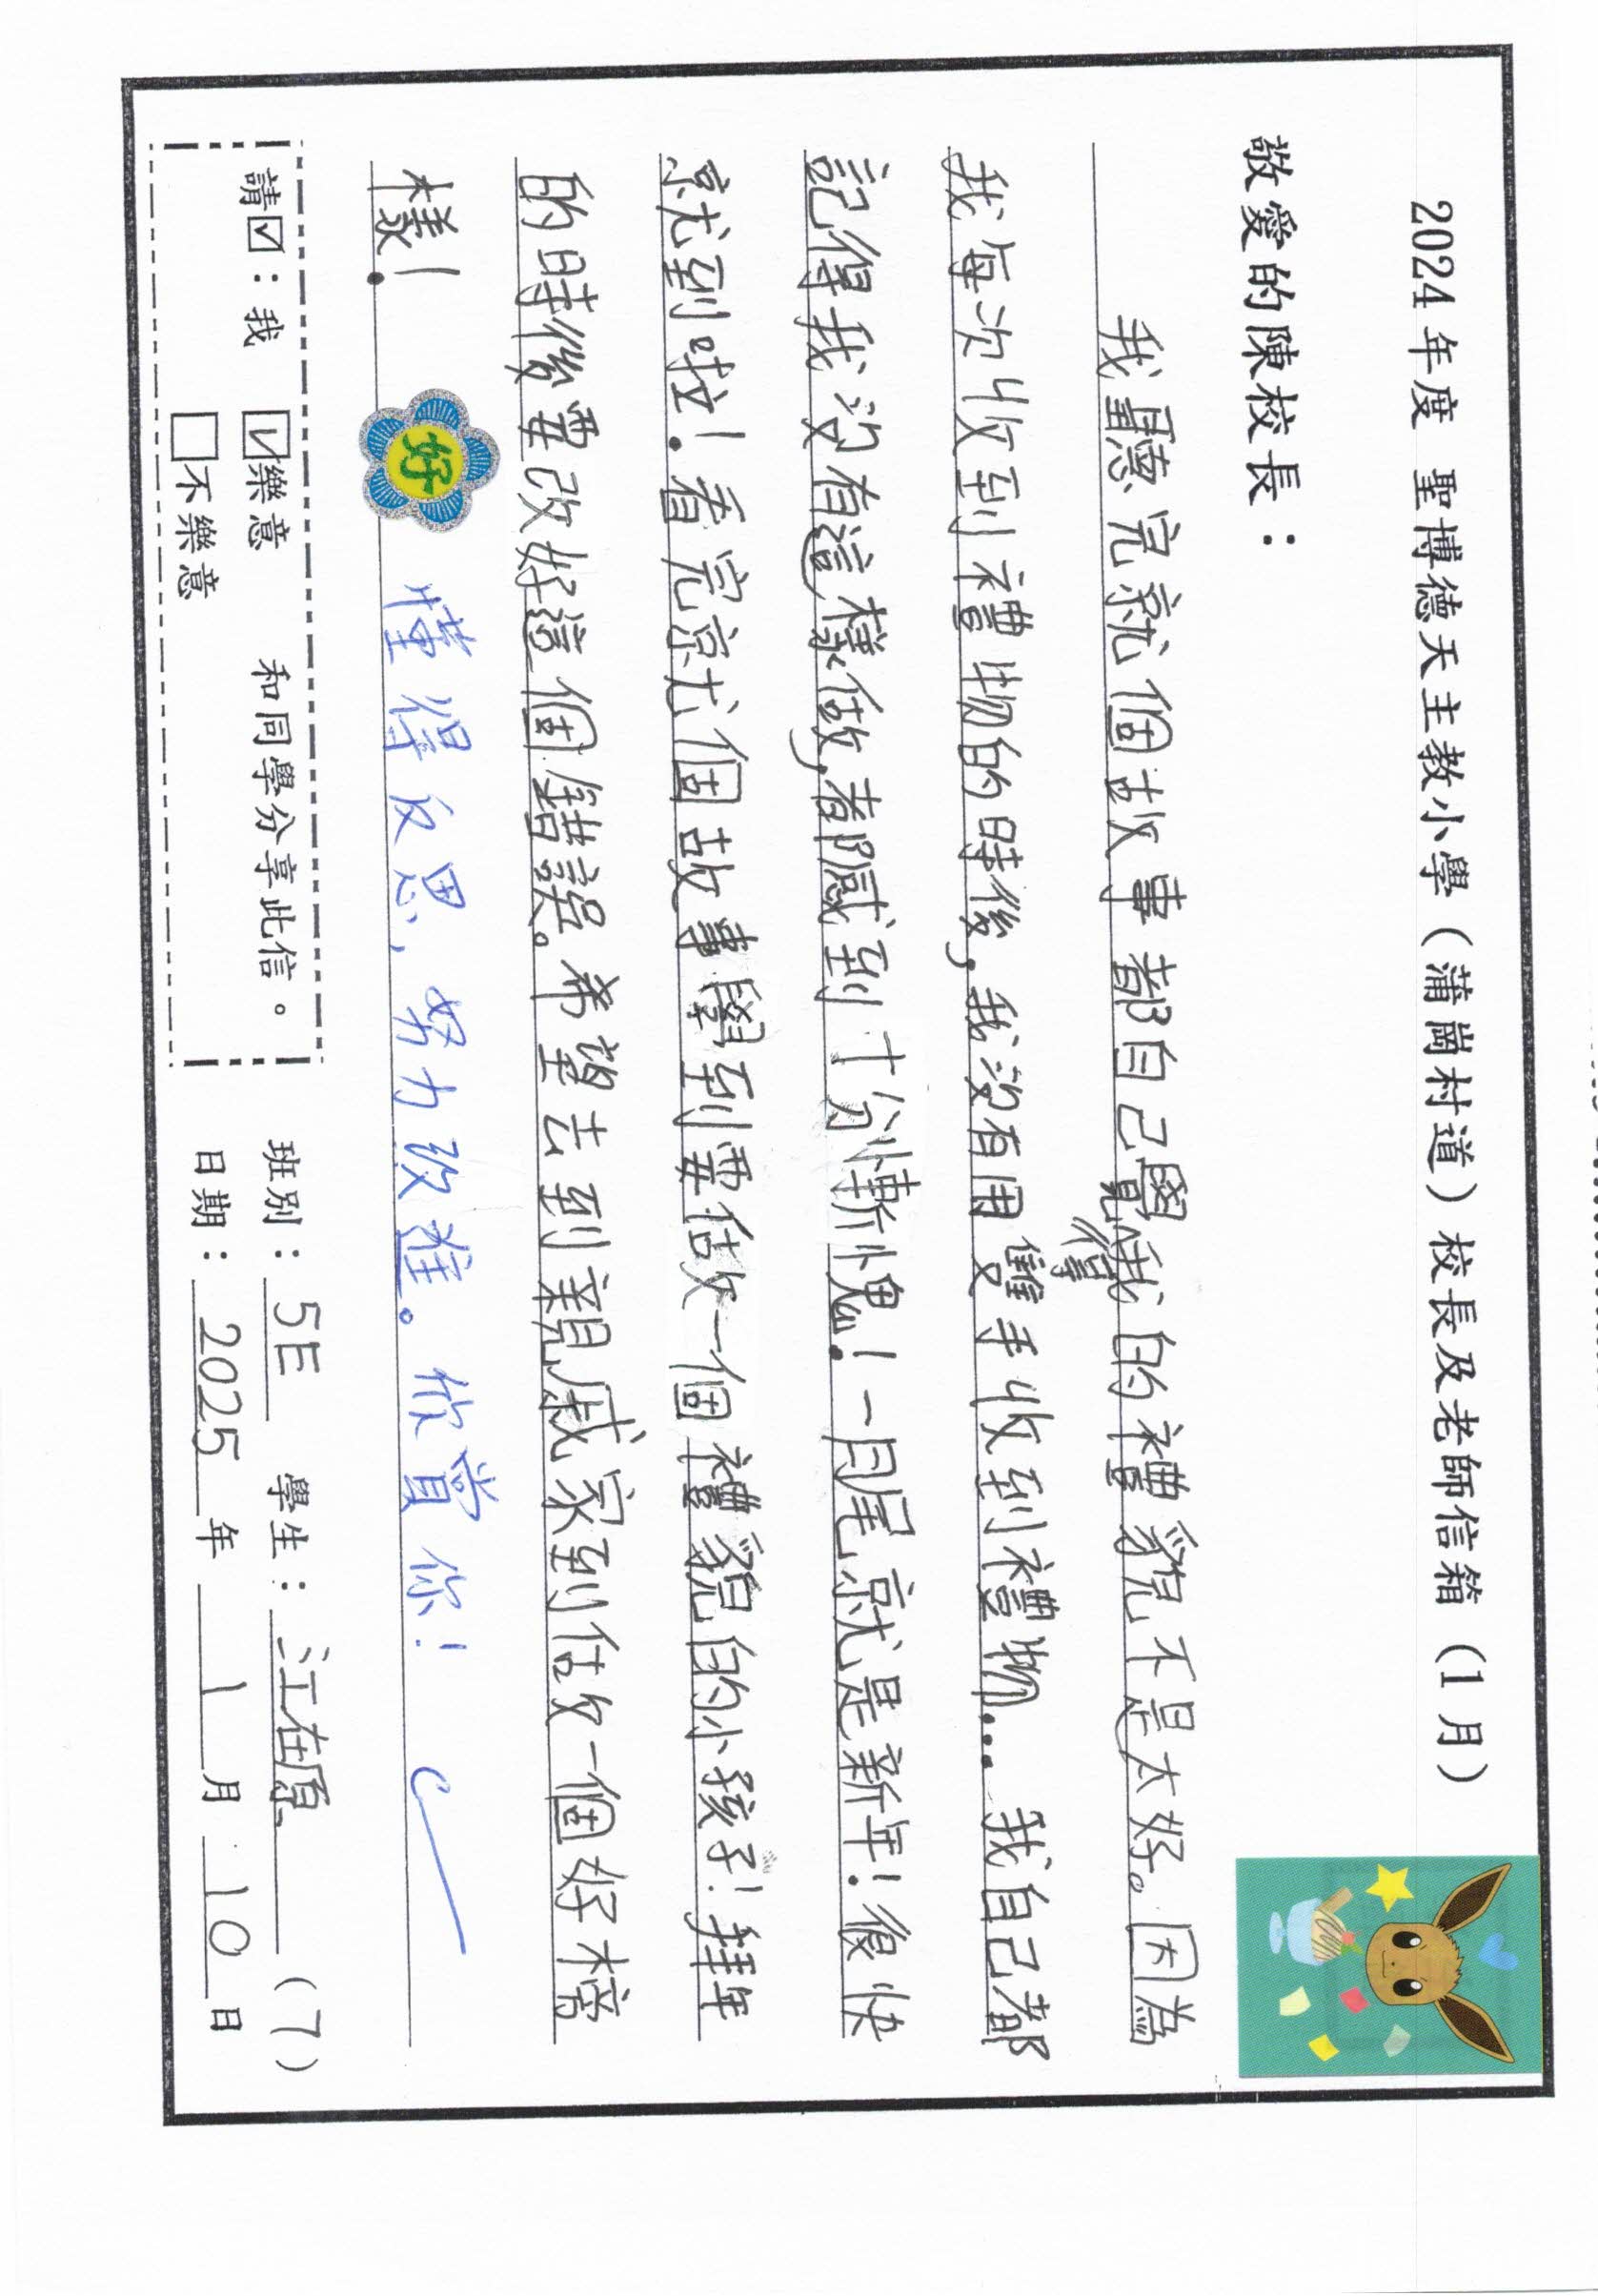 2024年度 聖博德天主教小學（蒲崗村道）校長及老師信箱（1月）
敬愛的陳校長：
我聽完就個故事都自己覺得我的禮貌不是太好。因為
我每次收到禮物的時後，我沒有用雙手收到禮物... 我自己都
記得我沒有這樣做，都感到十分慚愧！一月尾就是新年！很快
就到啦！看完就個故事學到要做一個禮貌的小孩子！拜年
的時後要改好這個錯誤。希望去到親戚家到做一個好榜
樣！
好
懂得反思，努力改進。欣賞你！
請☑：我 ☑樂意 和同學分享此信。
□不樂意
班別：5E 學生：江在原（7）
日期：2025年1月10日